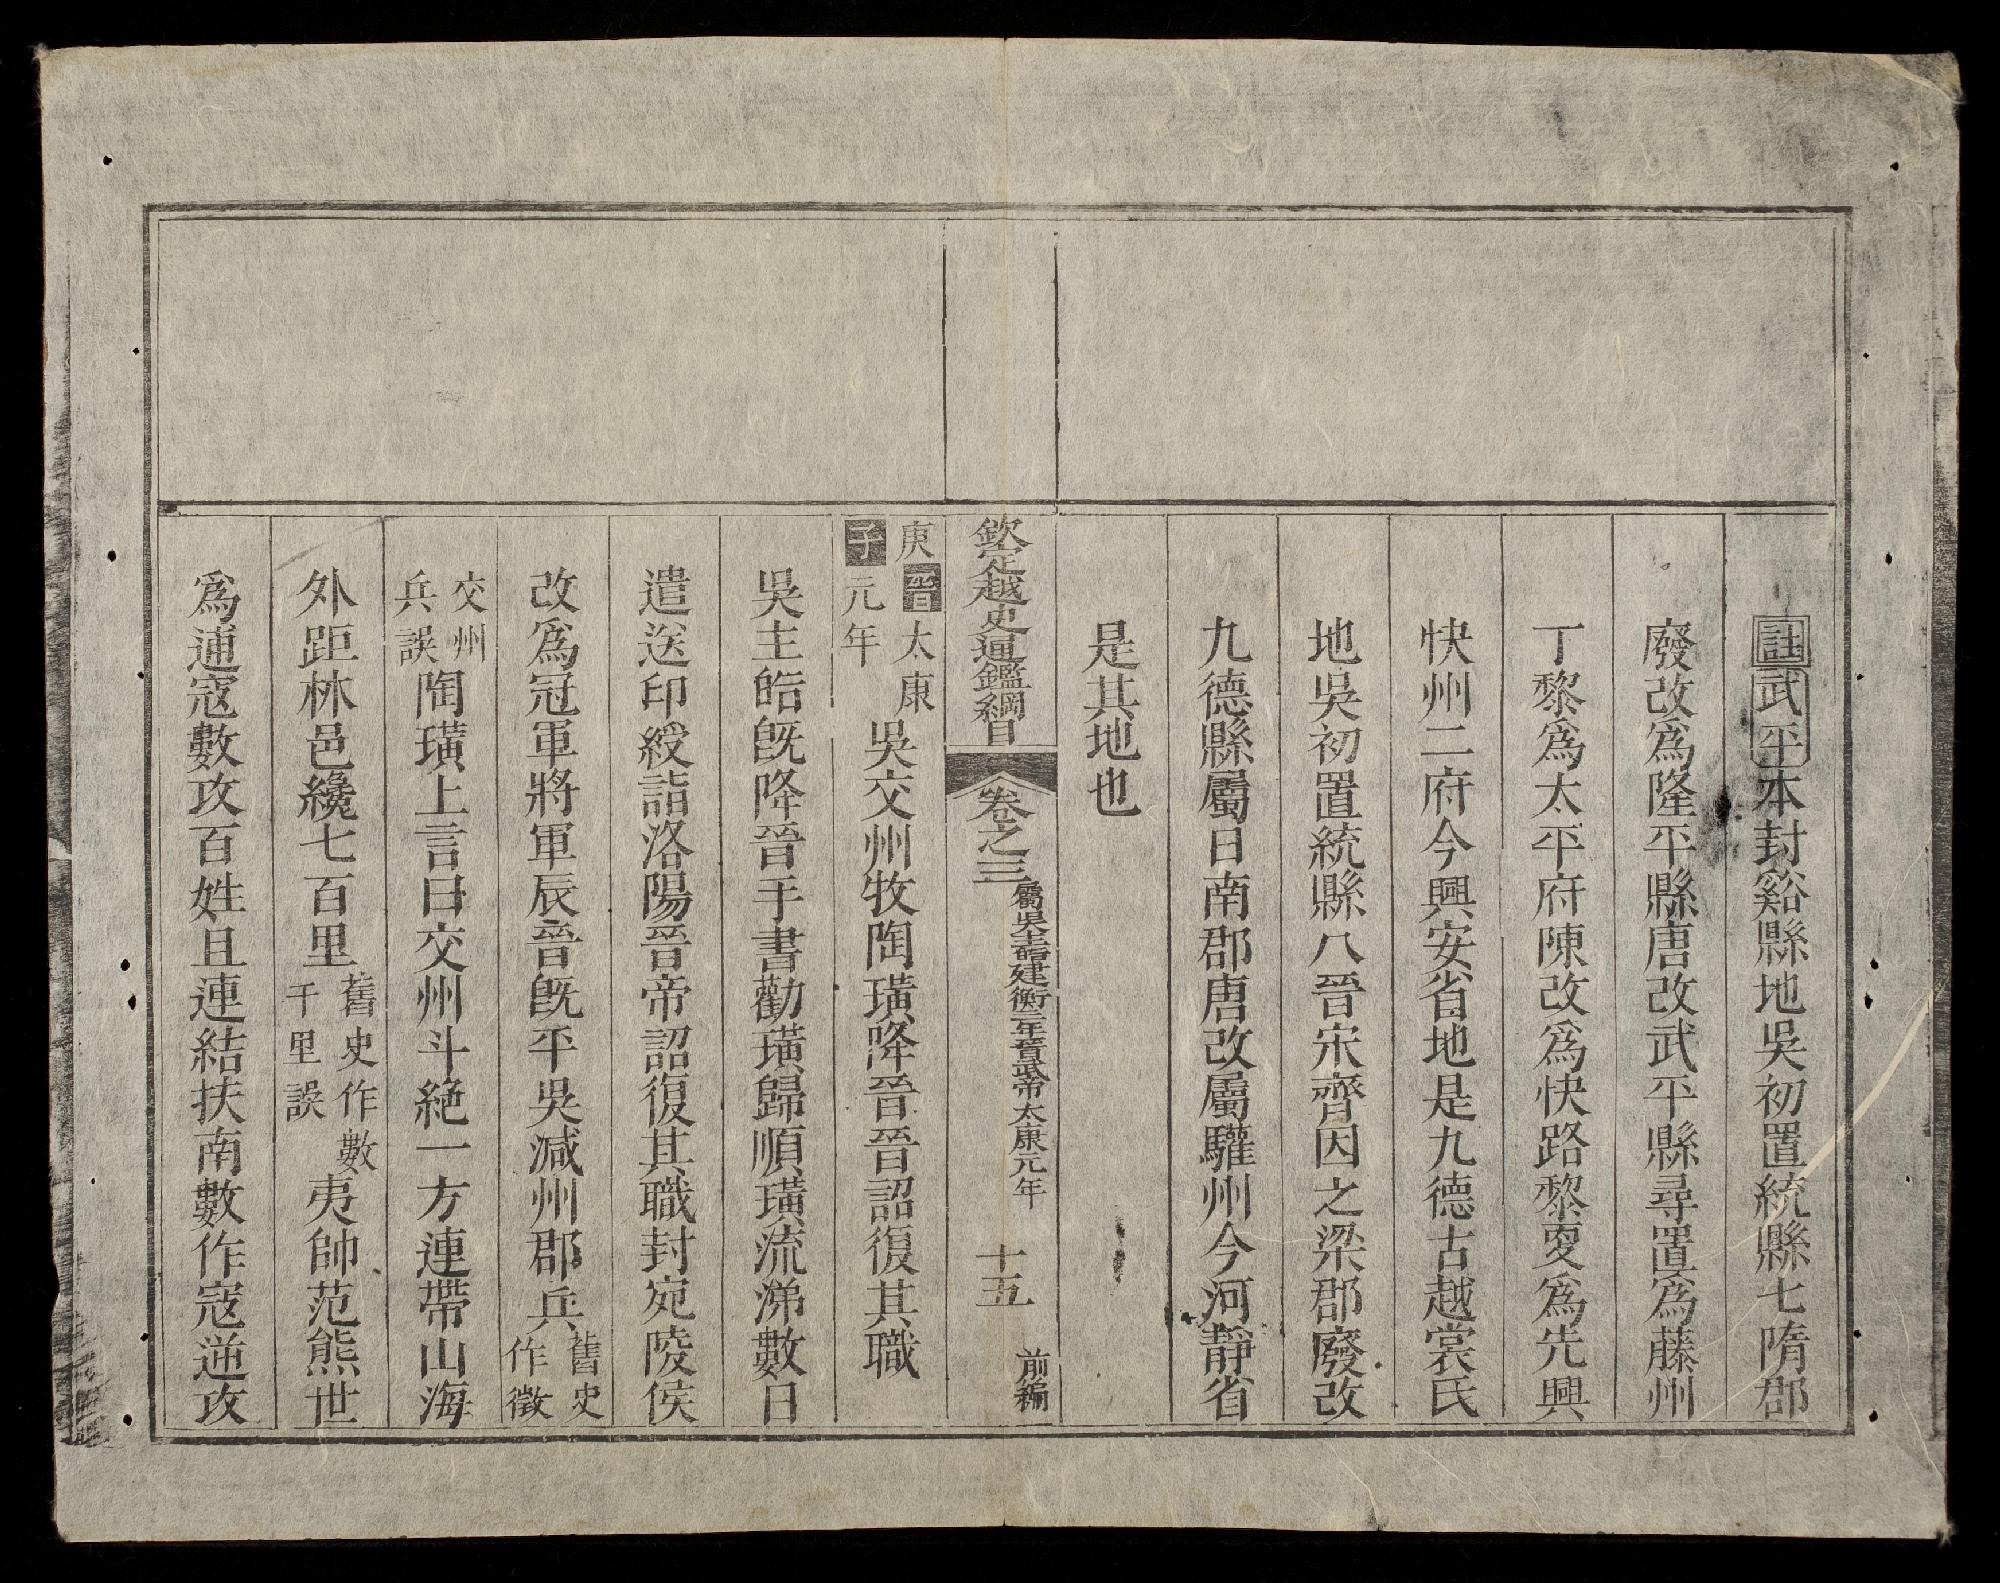 註武平本封谿縣地吳初置統縣七隋郡
廢改爲隆平縣唐改武平縣尋置爲藤州
丁黎爲太平府陳改爲快路黎更爲先興
快州二府今興安省地是九德古越裳氏
地吳初置統縣八晉宋齊因之梁郡廢改
九德縣屬日南郡唐改屬驩州今河靜省
是其地也
欽定越史通鑑綱目 卷之三 屬吳主皓建衡三年晉武帝太康元年 十五 前編
庚子晉太康元年吳交州牧陶璜降晉晉詔復其職
吳主皓旣降晉手書勸璜歸順璜流涕數日
遣送印綬詣洛陽晉帝詔復其職封宛陵侯
改爲冠軍將軍辰晉旣平吳減州郡兵舊史作徵
交州兵誤陶璜上言曰交州斗絶一方連帶山海
外距林邑纔七百里舊史作數千里誤夷帥范熊世
爲逋寇數攻百姓且連結扶南數作寇逆攻